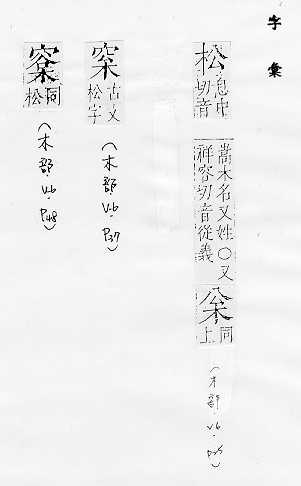 字彙
松 息中切音
嵩木名又姓○又
祥容切音從義
枀 同上
(木部.V.6.
古文松字
(木部.V.6.P37)
㮤 同松
(木部.V.6.P48)